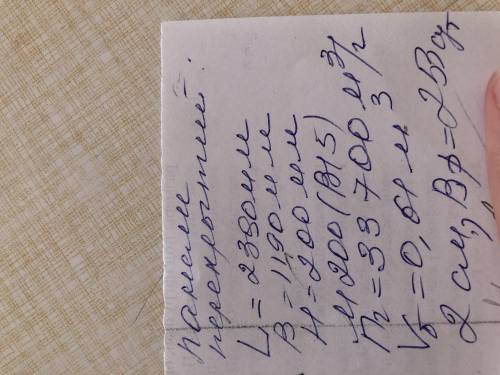 панели
перекрытий.
L = 2380мм
B = 1190мм
H = 200мм
М200 (В15)
П2 = 33 700 м³/г
Vб = 0,61 м³
2 см, Вф = 2Вст